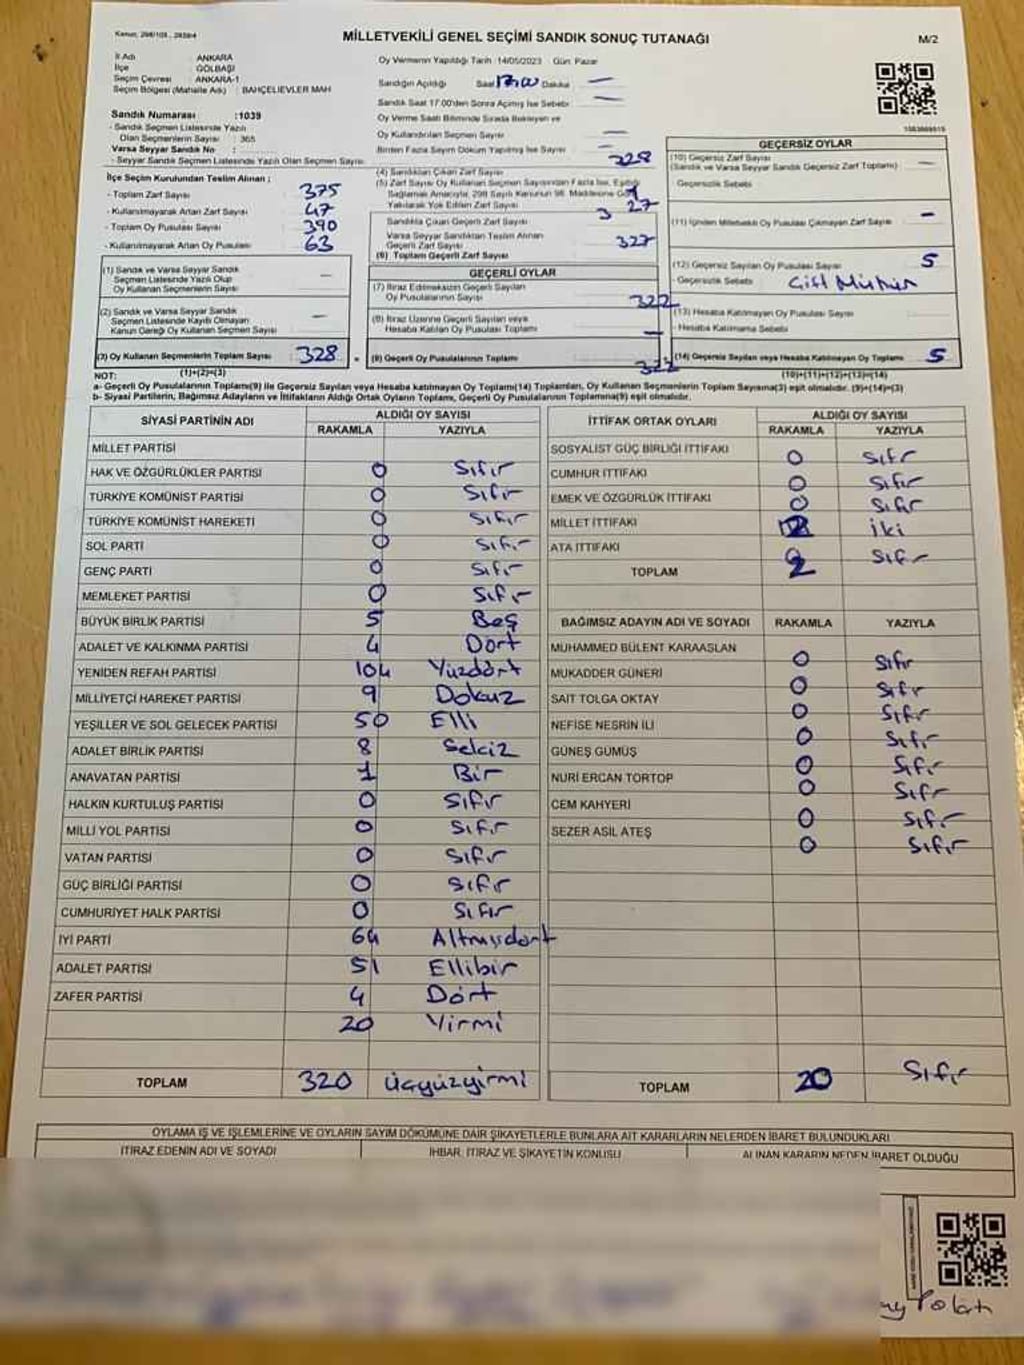 Kanun: 298/105, 2839/4
MİLLETVEKİLİ GENEL SEÇİMİ SANDIK SONUÇ TUTANAĞI
M/2
İl Adı : ANKARA
İlçe : GÖLBAŞI
Seçim Çevresi : ANKARA-1
Seçim Bölgesi (Mahalle Adı) : BAHÇELİEVLER MAH
Oy Vermenin Yapıldığı Tarih :14/05/2023 Gün: Pazar
Sandığın Açıldığı Saat Dakika —
Sandık Saat 17.00'den Sonra Açılmış İse Sebebi —
Oy Verme Saati Bitiminde Sırada Bekleyen ve
Oy Kullandırılan Seçmen Sayısı —
Birden Fazla Sayım Döküm Yapılmış İse Sayısı
Sandık Numarası :1039
- Sandık Seçmen Listesinde Yazılı
Olan Seçmenlerin Sayısı : 365
Varsa Seyyar Sandık No :
- Seyyar Sandık Seçmen Listesinde Yazılı Olan Seçmen Sayısı
İlçe Seçim Kurulundan Teslim Alınan ;
- Toplam Zarf Sayısı 375
- Kullanılmayarak Artan Zarf Sayısı 47
- Toplam Oy Pusulası 390
- Kullanılmayarak Artan Oy Pusulası 63
(1) Sandık ve Varsa Seyyar Sandık
Seçmen Listesinde Yazılı Olup
Oy Kullanan Seçmenlerin Sayısı —
(2) Sandık ve Varsa Seyyar Sandık
Seçmen Listesinde Kayıtlı Olmayan
Kanun Gereği Oy Kullanan Seçmen Sayısı —
(3) Oy Kullanan Seçmenlerin Toplam Sayısı 328
(1)+(2)=(3)
(4) Sandıktan Çıkan Zarf Sayısı 328
(5) Zarf Sayısı Oy Kullanan Seçmen Sayısından Fazla İse, Eşitliği
Sağlamak Amacıyla, 298 Sayılı Kanunun 98. Maddesine Göre
Yakılarak Yok Edilen Zarf Sayısı
Sandıkta Çıkan Geçerli Zarf Sayısı 327
Varsa Seyyar Sandıktan Teslim Alınan
Geçerli Zarf Sayısı
(6) Toplam Geçerli Zarf Sayısı 327
GEÇERLİ OYLAR
(7) İtiraz Edilmeksizin Geçerli Sayılan
Oy Pusulalarının Sayısı 322
(8) İtiraz Üzerine Geçerli Sayılan veya
Hesaba Katılan Oy Pusulası Toplamı —
(9) Geçerli Oy Pusulalarının Toplamı 322
GEÇERSİZ OYLAR
(10) Geçersiz Zarf Sayısı
(Sandık ve Varsa Seyyar Sandık Geçersiz Zarf Toplamı) —
Geçersizlik Sebebi
(11) İçinden Milletvekili Oy Pusulası Çıkmayan Zarf Sayısı —
(12) Geçersiz Sayılan Oy Pusulası Sayısı 5
- Geçersizlik Sebebi Çift Mühür
(13) Hesaba Katılmayan Oy Pusulası Sayısı
- Hesaba Katılmama Sebebi
(14) Geçersiz Sayılan veya Hesaba Katılmayan Oy Toplamı 5
(10)+(11)+(12)+(13)=(14)
NOT:
a- Geçerli Oy Pusulalarının Toplamı(9) ile Geçersiz Sayılan veya Hesaba katılmayan Oy Toplamı(14) Toplamları, Oy Kullanan Seçmenlerin Toplam Sayısına(3) eşit olmalıdır. (9)+(14)=(3)
b- Siyasi Partilerin, Bağımsız Adayların ve İttifakların Aldığı Ortak Oyların Toplamı, Geçerli Oy Pusulalarının Toplamına(9) eşit olmalıdır.
SİYASİ PARTİNİN ADI ALDIĞI OY SAYISI
RAKAMLA YAZIYLA
MİLLET PARTİSİ 0 Sıfır
HAK VE ÖZGÜRLÜKLER PARTİSİ 0 Sıfır
TÜRKİYE KOMÜNİST PARTİSİ 0 Sıfır
TÜRKİYE KOMÜNİST HAREKETİ 0 Sıfır
SOL PARTİ 0 Sıfır
GENÇ PARTİ 0 Sıfır
MEMLEKET PARTİSİ 5 Beş
BÜYÜK BİRLİK PARTİSİ 4 Dört
ADALET VE KALKINMA PARTİSİ 104 Yüzdört
YENİDEN REFAH PARTİSİ 9 Dokuz
MİLLİYETÇİ HAREKET PARTİSİ 50 Elli
YEŞİLLER VE SOL GELECEK PARTİSİ 8 Sekiz
ADALET BİRLİK PARTİSİ 1 Bir
ANAVATAN PARTİSİ 0 Sıfır
HALKIN KURTULUŞ PARTİSİ 0 Sıfır
MİLLİ YOL PARTİSİ 0 Sıfır
VATAN PARTİSİ 0 Sıfır
GÜÇ BİRLİĞİ PARTİSİ 0 Sıfır
CUMHURİYET HALK PARTİSİ 64 Altmışdört
İYİ PARTİ 51 Ellibir
ADALET PARTİSİ 4 Dört
ZAFER PARTİSİ 20 Yirmi
TOPLAM 320 Üçyüzyirmi
İTTİFAK ORTAK OYLARI ALDIĞI OY SAYISI
RAKAMLA YAZIYLA
SOSYALİST GÜÇ BİRLİĞİ İTTİFAKI 0 Sıfır
CUMHUR İTTİFAKI 0 Sıfır
EMEK VE ÖZGÜRLÜK İTTİFAKI 0 Sıfır
MİLLET İTTİFAKI 2 İki
ATA İTTİFAKI Sıfır
TOPLAM 2
BAĞIMSIZ ADAYIN ADI VE SOYADI RAKAMLA YAZIYLA
MUHAMMED BÜLENT KARAASLAN 0 Sıfır
MUKADDER GÜNERİ 0 Sıfır
SAİT TOLGA OKTAY 0 Sıfır
NEFİSE NESRİN İLİ 0 Sıfır
GÜNEŞ GÜMÜŞ 0 Sıfır
NURİ ERCAN TORTOP 0 Sıfır
CEM KAHYERİ 0 Sıfır
SEZER ASIL ATEŞ 0 Sıfır
TOPLAM 20 Sıfır
OYLAMA İŞ VE İŞLEMLERİNE VE OYLARIN SAYIM DÖKÜMÜNE DAİR ŞİKAYETLERLE BUNLARA AİT KARARLARIN NELERDEN İBARET BULUNDUKLARI
İTİRAZ EDENİN ADI VE SOYADI İHBAR, İTİRAZ VE ŞİKAYETİN KONUSU ALINAN KARARIN NEDEN İBARET OLDUĞU
Polatı